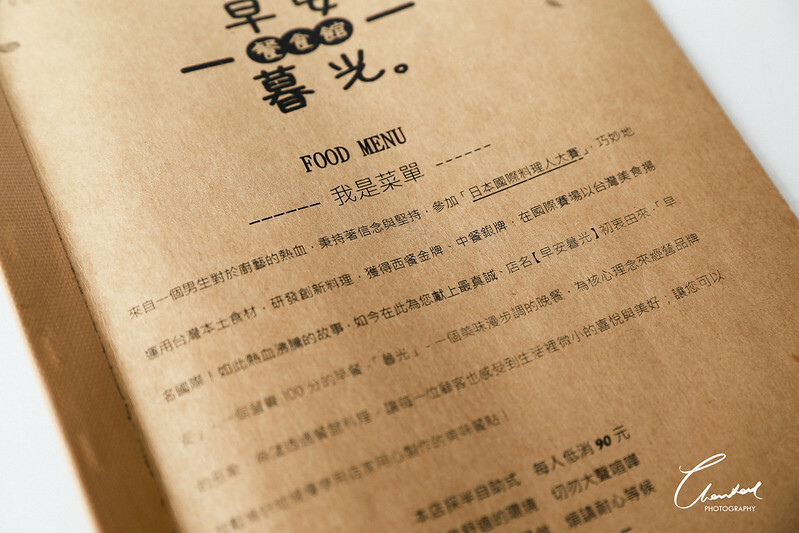 早安
餐食館
暮光。
FOOD MENU
------ 我是菜單 ------
來自一個男生對於廚藝的熱血，秉持著信念與堅持，參加「日本國際料理人大賽」，巧妙地
運用台灣本土食材，研發創新料理，獲得西餐金牌，中餐銀牌，在國際賽場以台灣美食揚
名國際！如此熱血沸騰的故事，如今在此為您獻上最真誠，店名【早安暮光】初衷由來，「早
安」，一個營養100分的早餐，「暮光」，一個美味漫步調的晚餐，為核心理念來經營品牌
的形象，透過餐館料理，讓每一位顧客也感受到生活裡微小的喜悅與美好；讓您可以
用心製作的美味餐點」
本店採半自助式 每人低消 90 元
舒適的環境 切勿大聲喧嘩
煩請耐心等候
PHOTOGRAPHY